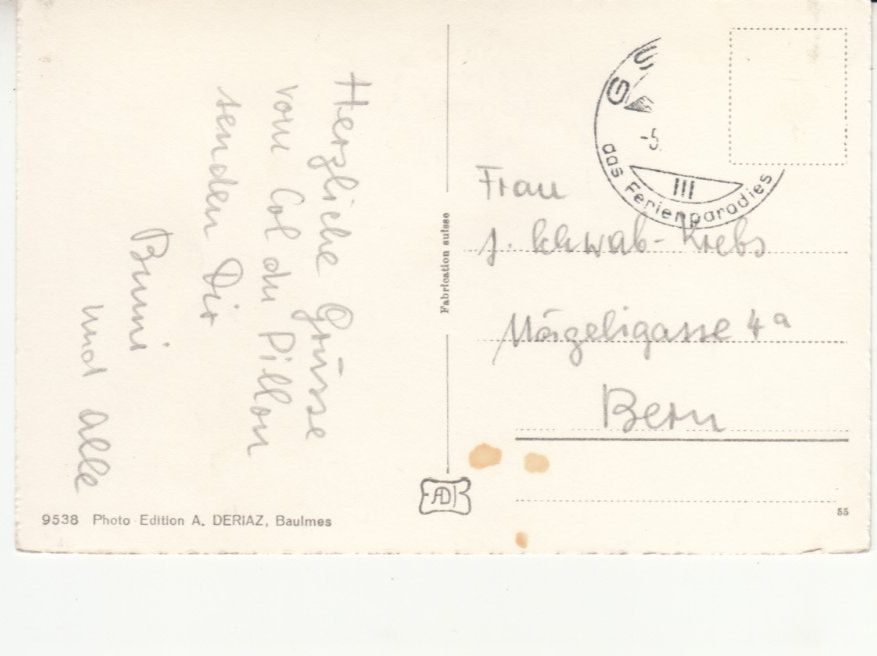 Herzliche Grüsse
vom Col du Pillon
senden Dir
Bruni
und alle
9538 Photo Edition A. DERIAZ, Baulmes
Fabrication suisse
GS
-5.
III
das Ferienparadies
Frau
J. Schwab-Krebs
Nägeligasse 4a
Bern
55